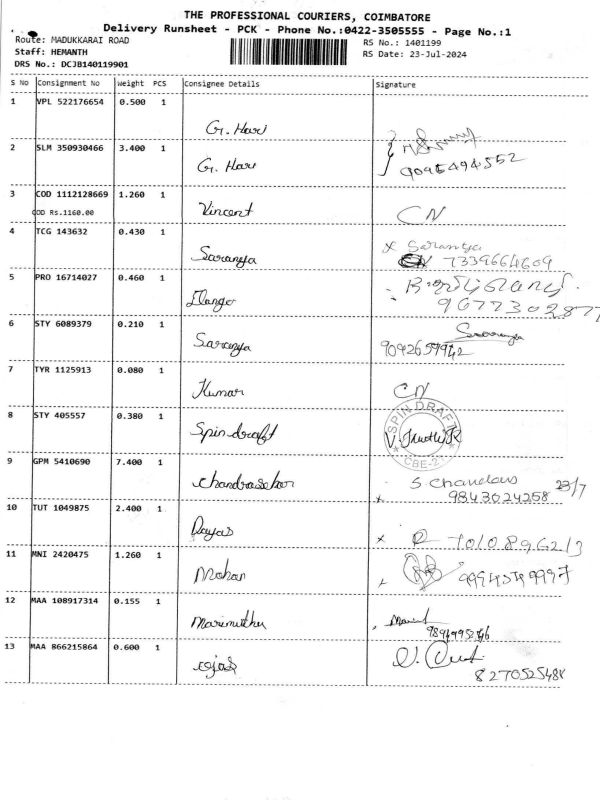 THE PROFESSIONAL COURIERS, COIMBATORE
Delivery Runsheet - PCK - Phone No.:0422-3505555 - Page No.:1
Route: MADUKKARAI ROAD
RS No.: 1401199
Staff: HEMANTH
RS Date: 23-Jul-2024
DRS No.: DCJB140119901
S No Consignment No Weight PCS Consignee Details Signature
1 VPL 522176654 0.500 1
G. Hari
2 SLM 350930466 3.400 1
G. Hari
9095494552
3 COD 1112128669 1.260 1
COD Rs.1160.00
Vincent CN
4 TCG 143632 0.430 1
Saranya
x Saranya
7339664609
5 PRO 16714027 0.460 1
Elango
967730287
6 STY 6089379 0.210 1
Saranya
Saranya
9042659942
7 TYR 1125913 0.080 1
Kumar CN
8 STY 405557 0.380 1
Spindraft
SPIN DRAFT
CBE-21
9 GPM 5410690 7.400 1
Chandrasekar
S Chandars 23/7
x 9843024258
10 TUT 1049875 2.400 1
x 7010896213
11 MNI 2420475 1.260 1
Mohan
12 MAA 108917314 0.155 1
Marimuthu
13 MAA 866215864 0.600 1